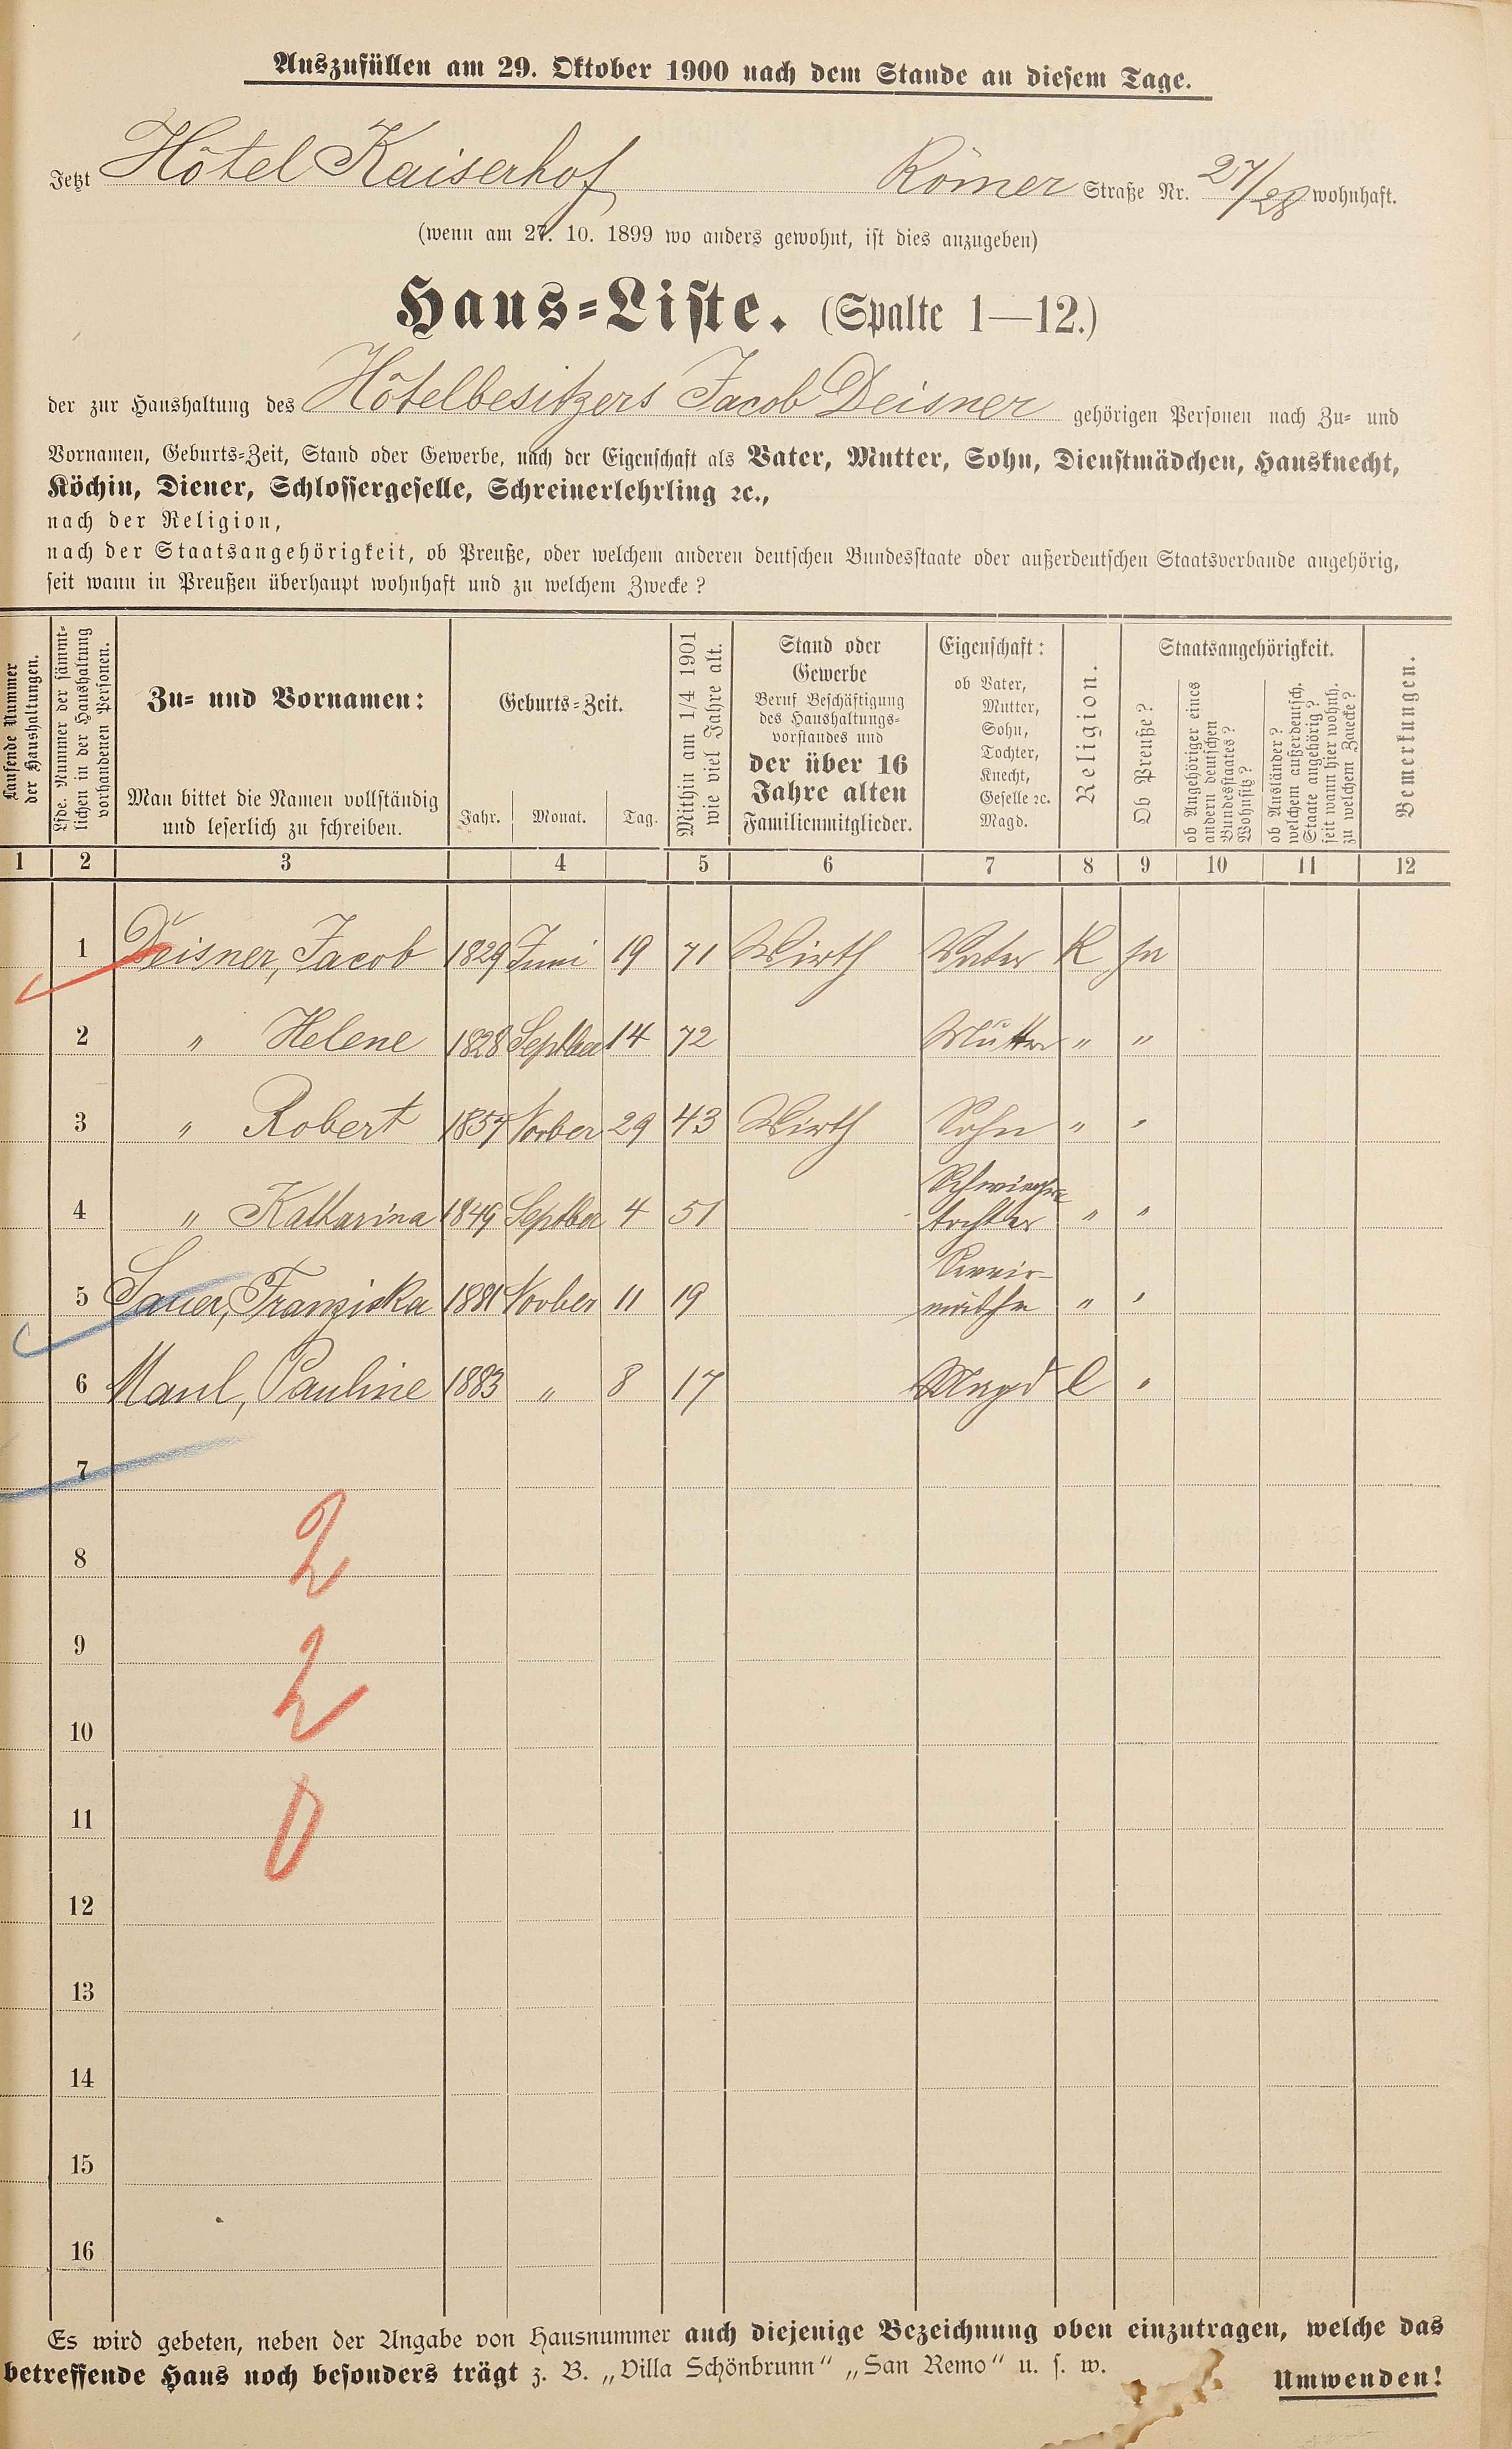 Auszufüllen am 29. Oktober 1900 nach dem Stande an diesem Tage.
Jetzt Hôtel Kaiserhof Römer Straße Nr. 27/28 wohnhaft.
(wenn am 27. 10. 1899 wo anders gewohnt, ist dies anzugeben)
Haus-Liste. (Spalte 1—12.)
der zur Haushaltung des Hôtelbesitzers Jacob Deisner gehörigen Personen nach Zu- und
Vornamen, Geburts-Zeit, Stand oder Gewerbe, nach der Eigenschaft als Vater, Mutter, Sohn, Dienstmädchen, Hausknecht,
Köchin, Diener, Schlossergeselle, Schreinerlehrling ꝛc.,
nach der Religion,
nach der Staatsangehörigkeit, ob Preuße, oder welchem anderen deutschen Bundesstaate oder außerdeutschen Staatsverbande angehörig,
seit wann in Preußen überhaupt wohnhaft und zu welchem Zwecke?
Laufende Nummer
der Haushaltungen.
Lfde. Nummer der sämmt-
lichen in der Haushaltung
vorhandenen Personen.
Zu- und Vornamen:
Man bittet die Namen vollständig
und leserlich zu schreiben.
Geburts-Zeit.
Jahr. Monat. Tag.
Mithin am 1/4 1901
wie viel Jahre alt.
Stand oder
Gewerbe
Beruf Beschäftigung
des Haushaltungs-
vorstandes und
der über 16
Jahre alten
Familienmitglieder.
Eigenschaft:
ob Vater,
Mutter,
Sohn,
Tochter,
Knecht,
Geselle ꝛc.
Magd.
Religion.
Staatsangehörigkeit.
Ob Preuße?
ob Angehöriger eines
andern deutschen
Bundesstaates?
Wohnsitz?
ob Ausländer?
welchem außerdeutsch.
Staate angehörig?
seit wann hier wohnh.
zu welchem Zwecke?
Bemerkungen.
1 2 3 4 5 6 7 8 9 10 11 12
1 Deisner, Jacob 1829 Juni 19 71 Wirth Vater K ja
2 " Helene 1828 Septber 14 72 Mutter " "
3 " Robert 1857 Novber 29 43 Wirth Sohn " "
4 " Katharina 1849 Septber 4 51 Schwieger
tochter " "
5 Sauer, Franziska 1881 Novber 11 19 " "
6 Maul, Pauline 1883 " 8 17 Magd "
7
8
2
9
2
10
11
0
12
13
14
15
16
Es wird gebeten, neben der Angabe von Hausnummer auch diejenige Bezeichnung oben einzutragen, welche das
betreffende Haus noch besonders trägt z. B. „Villa Schönbrunn“ „San Remo“ u. s. w.
Umwenden!